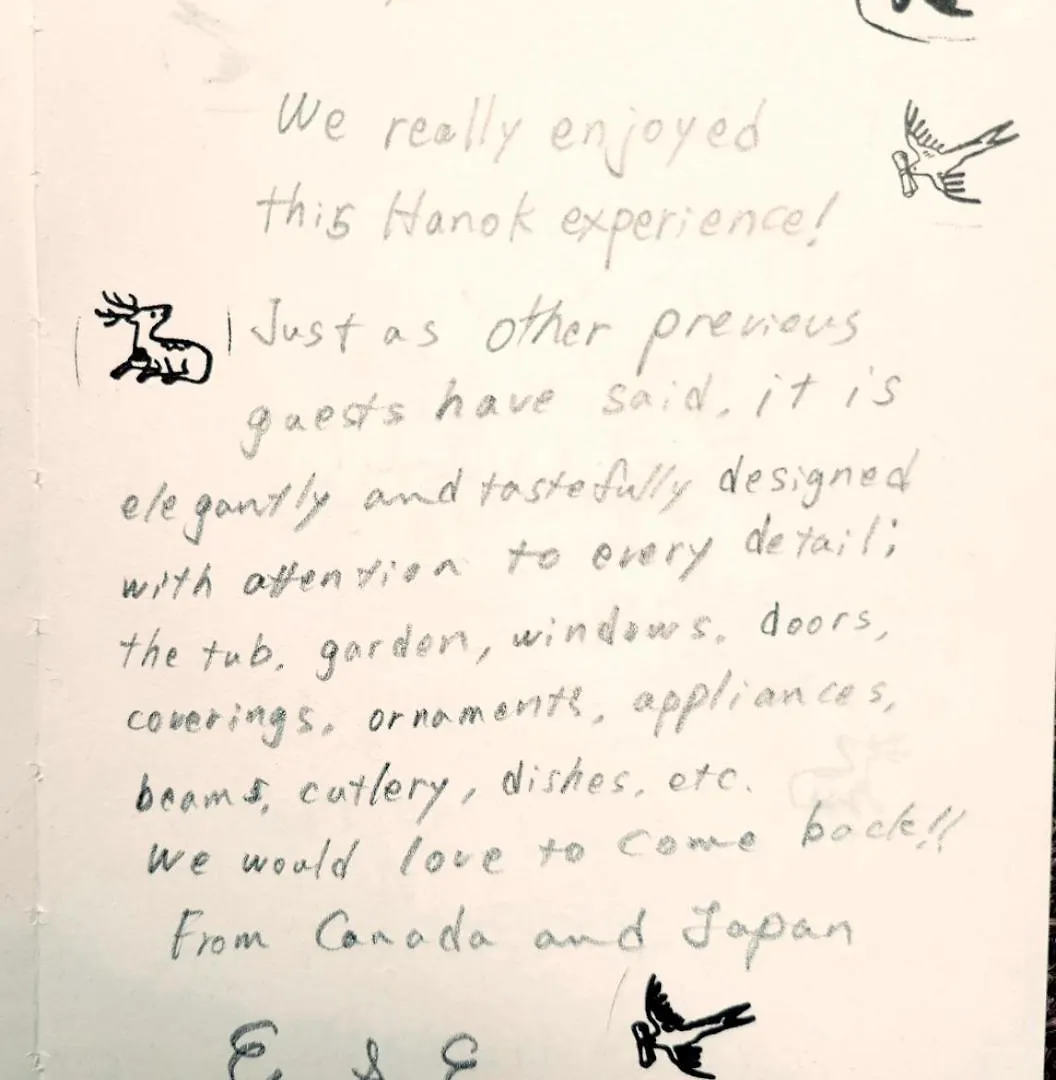 We really enjoyed
this Hanok experience!
Just as other previous
guests have said, it is
elegantly and tastefully designed
with attention to every detail;
the tub, garden, windows, doors,
coverings, ornaments, appliances,
beams, cutlery, dishes, etc.
We would love to come back!!
From Canada and Japan